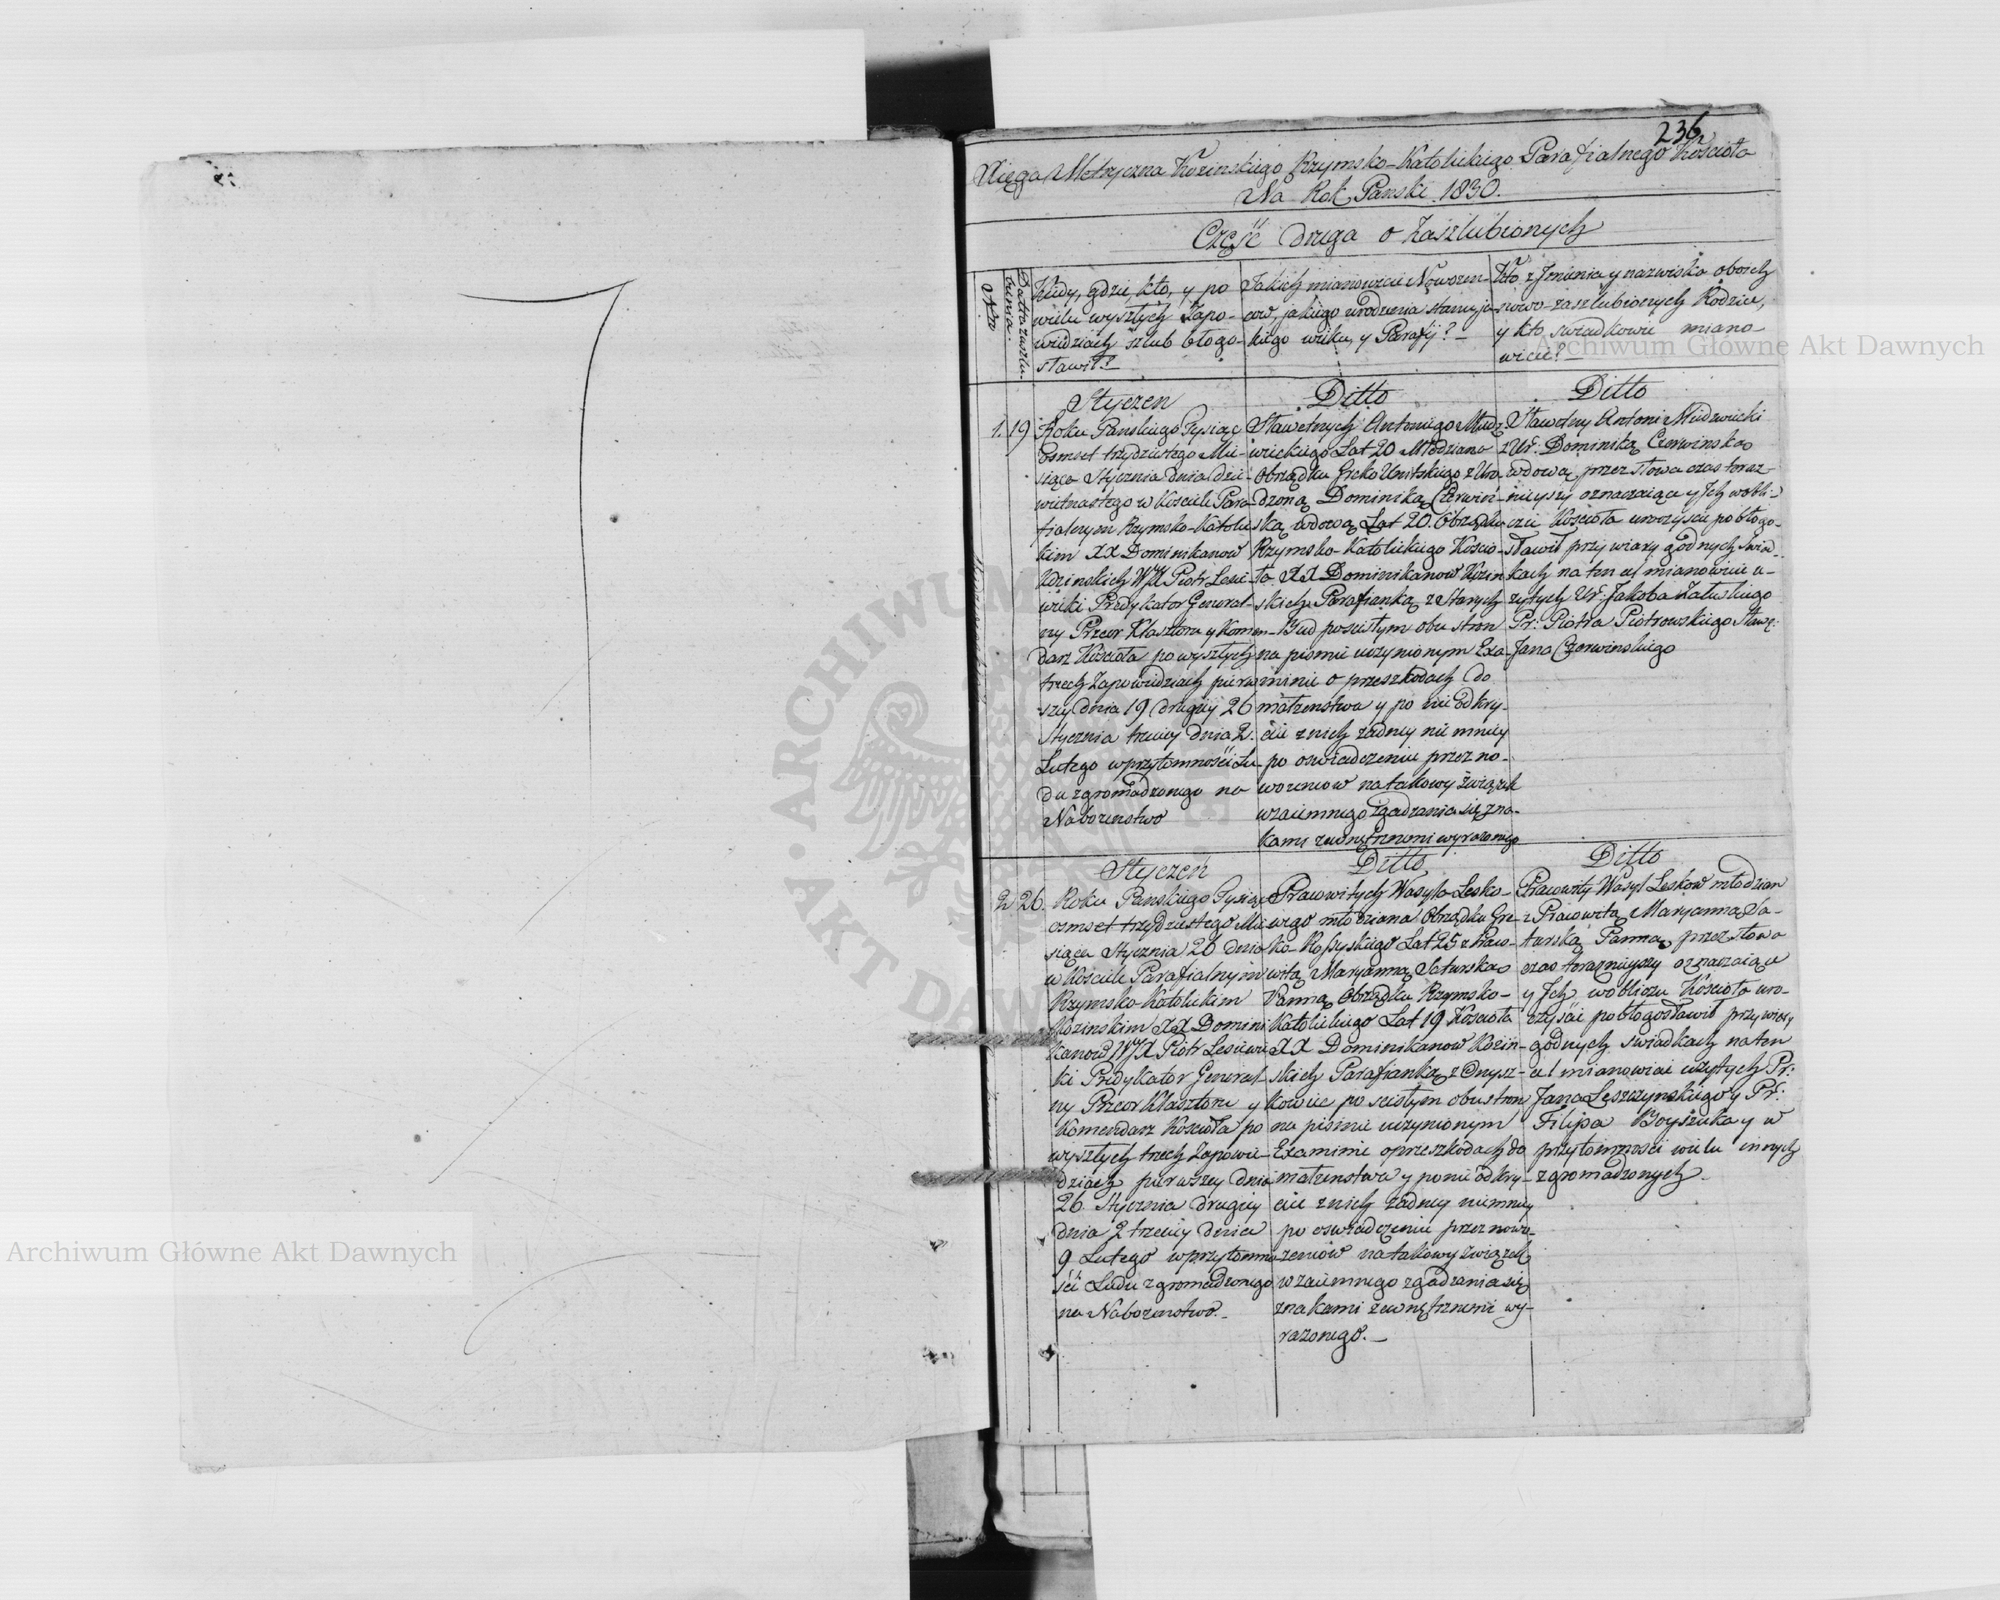 236
Xięga Metryczna Kozinskiego Rzymsko-Katolickiego Parafialnego Kościoła
Na Rok Panski 1830.
Część druga o Zaszlubionych
Nro
Datta zaszlu-
bienia.
Kiedy, gdzie, kto, y po
wielu wyszłych Zapo-
wiedziach szlub błogo-
sławił?
Jakich mianowicie Nowożen-
cow, jakiego urodzenia stanu, ja-
kiego wieku, y Parafij?
Kto z Jmienia y nazwiska oboich
nowo-zaszlubionych Rodzice,
y kto swiadkowie miano-
wicie?
Styczen
1. 19
Roku Panskiego Tysiąc
Osmset trzydziestego Mie-
siąca Stycznia dnia dzie-
wietnastego w Kosciele Para-
fialnym Rzymsko-Katolic-
kim XX Dominikanow
Kozinskich WJX Piotr Lesie-
wicki Predykator General-
ny Przeor Klasztoru y Komen-
darz Kościoła po wyszłych
trzech Zapowiedziach pierw
szey dnia 19 drugiey 26
Stycznia trzeciey dnia 2.
Lutego w przytomności Lu-
du zgromadzonego na
Nabozenstwo
Ditto
Sławetnych Antoniego Miedz
wieckiego Lat 20 Młodziana
Obrządku Greko Unitskiego z Uro
dzoną Dominiką Czerwin-
ską wdową Lat 20. Obrządku
Rzymsko-Katolickiego Kościo-
ła XX Dominikanow Kozin
skich Parafianką z Starych
Bud po scisłym obu stron
na pismie uczynionym Exa-
minie o przeszkodach do
małzenstwa y po nie odkry-
ciu z nich zadney nie mniey
po oswiadczeniu przez no-
wozencow na takowy związek
wzaiemnego zgadzania się zna-
kami zewnętrznemi wyrazonego
Ditto
Sławetny Antoni Miedzwiecki
z Ur. Dominiką Czerwinską
wdową, przez słowa czas teraz
nieyszy oznaczaiące y Jch w obli-
czu Kościoła uroczyscie pobłogo-
sławił przy wiary godnych swiad-
kach na ten cel mianowicie u-
zytych Ur: Jakoba Załuskiego
Pr: Piotra Piotrowskiego Sławę:
Jana Czerwinskiego
Styczeń
2 26.
Roku Panskiego Tysiąc
osmset trzydziestego Mie
siąca Stycznia 26 dnia
w Kosciele Parafialnym
Rzymsko Katolickim
Kozinskim XX Domini
kanow WJX Piotr Lesiewic
ki Predykator General-
ny Przeor Klasztoru y
Komendarz Kościoła po
wyszłych trzech Zapowie-
dziach pierwszey dnia
26 Stycznia drugiey
dnia 2 trzeciey dnia
9 Lutego w przytomno
ści Ludu zgromadzonego
na Nabozenstwo.
Ditto
Pracowitych Wasyla Lesko-
wego młodziana Obrządku Gre-
ko-Rossyskiego Lat 25 z Praco-
witą Maryanną Saturską
Panną Obrządku Rzymsko-
Katolickiego Lat 19 Kościoła
XX Dominikanow Kozin-
skich Parafianką z Onysz-
kowiec po scisłym obustron
na pismie uczynionym
Examinie o przeszkodach do
małzenstwa y po nie odkry-
ciu z nich zadney niemniey
po oswiadczeniu przez nowo-
zeniow na takowy związek
wzaiemnego zgadzania się
znakami zewnętrznemi wy-
razonego.
Ditto
Pracowity Wasyl Leskow młodzian
z Pracowitą Maryanną Sa-
turską Panną przez słowa
czas teraznieyszy oznaczaiące
y Jch w obliczu Kościoła uro-
czyscie pobłogosławił przy wiary
godnych swiadkach na ten
cel mianowicie uzytych Pr:
Jana Leszczynskiego y Pr:
Filipa Boyszuka y w
przytomności wielu innych
zgromadzonych.
ARCHIWUM
AKT DAWNYCH
Archiwum Główne Akt Dawnych
Archiwum Główne Akt Dawnych